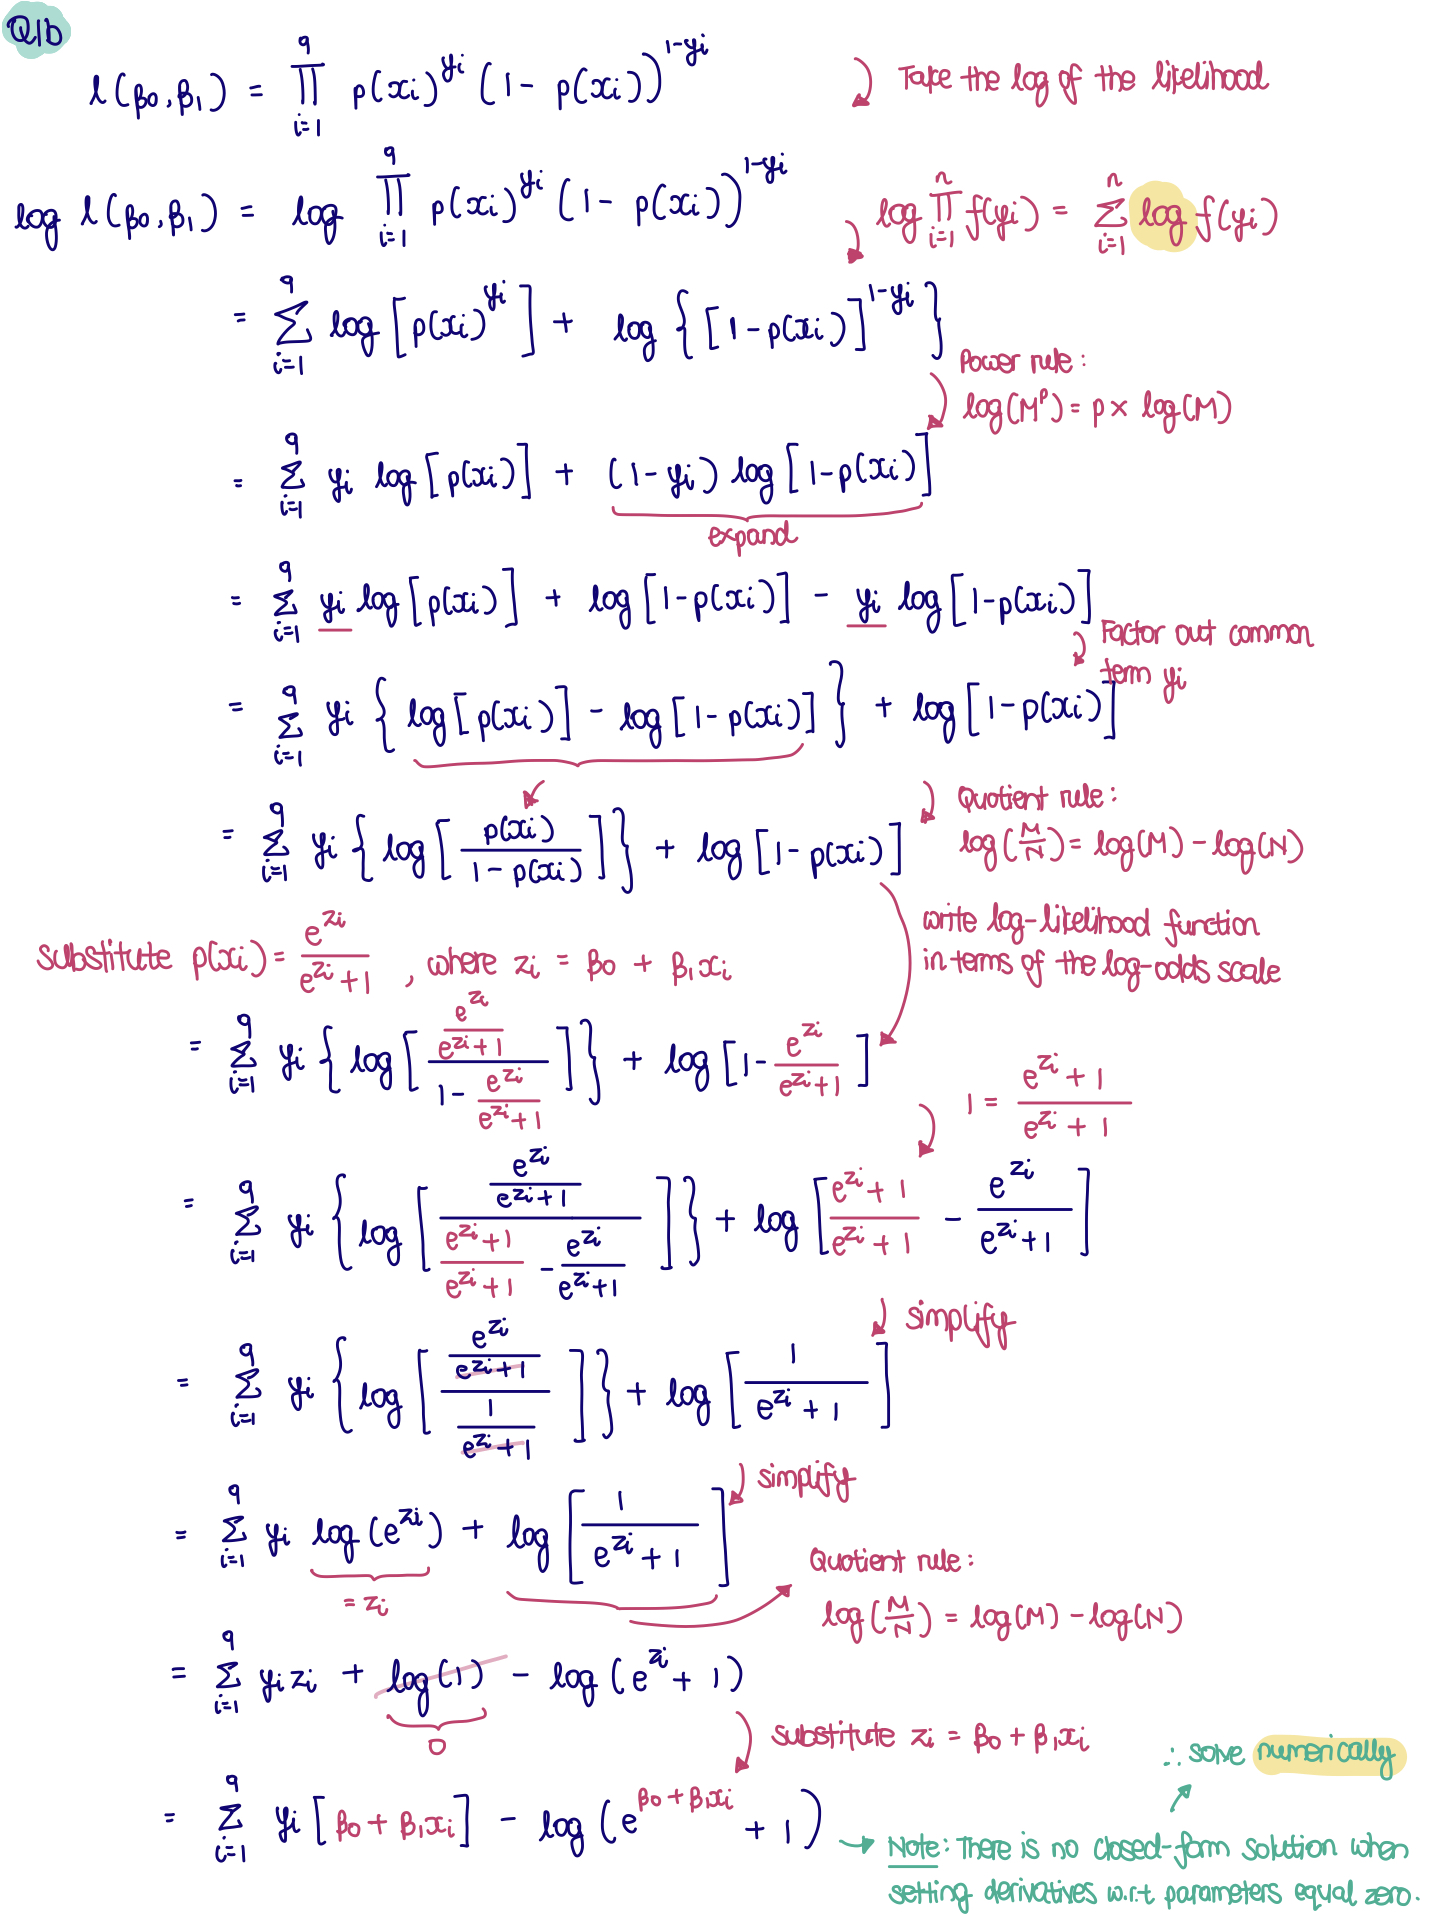 Q1b
l(β₀,β₁) = ∏_{i=1}^{9} p(xᵢ)^{yᵢ} (1 − p(xᵢ))^{1−yᵢ}
Take the log of the likelihood
log l(β₀,β₁) = log ∏_{i=1}^{9} p(xᵢ)^{yᵢ} (1 − p(xᵢ))^{1−yᵢ}
log ∏_{i=1}^{n} f(yᵢ) = ∑_{i=1}^{n} log f(yᵢ)
= ∑_{i=1}^{9} log [p(xᵢ)^{yᵢ}] + log {[1 − p(xᵢ)]^{1−yᵢ}}
Power rule:
log(M^p) = p × log(M)
= ∑_{i=1}^{9} yᵢ log[p(xᵢ)] + (1 − yᵢ) log[1 − p(xᵢ)]
expand
= ∑_{i=1}^{9} yᵢ log[p(xᵢ)] + log[1 − p(xᵢ)] − yᵢ log[1 − p(xᵢ)]
Factor out common
term yᵢ
= ∑_{i=1}^{9} yᵢ {log[p(xᵢ)] − log[1 − p(xᵢ)]} + log[1 − p(xᵢ)]
Quotient rule:
log(M/N) = log(M) − log(N)
= ∑_{i=1}^{9} yᵢ {log[p(xᵢ) / (1 − p(xᵢ))]} + log[1 − p(xᵢ)]
write log-likelihood function
in terms of the log-odds scale
substitute p(xᵢ) = e^{zᵢ} / (e^{zᵢ} + 1), where zᵢ = β₀ + β₁xᵢ
= ∑_{i=1}^{9} yᵢ {log[(e^{zᵢ} / (e^{zᵢ} + 1)) / (1 − e^{zᵢ} / (e^{zᵢ} + 1))]} + log[1 − e^{zᵢ} / (e^{zᵢ} + 1)]
1 = (e^{zᵢ} + 1) / (e^{zᵢ} + 1)
= ∑_{i=1}^{9} yᵢ {log[(e^{zᵢ} / (e^{zᵢ} + 1)) / ((e^{zᵢ} + 1) / (e^{zᵢ} + 1) − e^{zᵢ} / (e^{zᵢ} + 1))]} + log[(e^{zᵢ} + 1) / (e^{zᵢ} + 1) − e^{zᵢ} / (e^{zᵢ} + 1)]
simplify
= ∑_{i=1}^{9} yᵢ {log[(e^{zᵢ} / (e^{zᵢ} + 1)) / (1 / (e^{zᵢ} + 1))]} + log[1 / (e^{zᵢ} + 1)]
simplify
= ∑_{i=1}^{9} yᵢ log(e^{zᵢ}) + log[1 / (e^{zᵢ} + 1)]
= zᵢ
Quotient rule:
log(M/N) = log(M) − log(N)
= ∑_{i=1}^{9} yᵢzᵢ + log(1) − log(e^{zᵢ} + 1)
0
substitute zᵢ = β₀ + β₁xᵢ
= ∑_{i=1}^{9} yᵢ[β₀ + β₁xᵢ] − log(e^{β₀ + β₁xᵢ} + 1)
∴ solve numerically
Note: There is no closed-form solution when
setting derivatives w.r.t parameters equal zero.